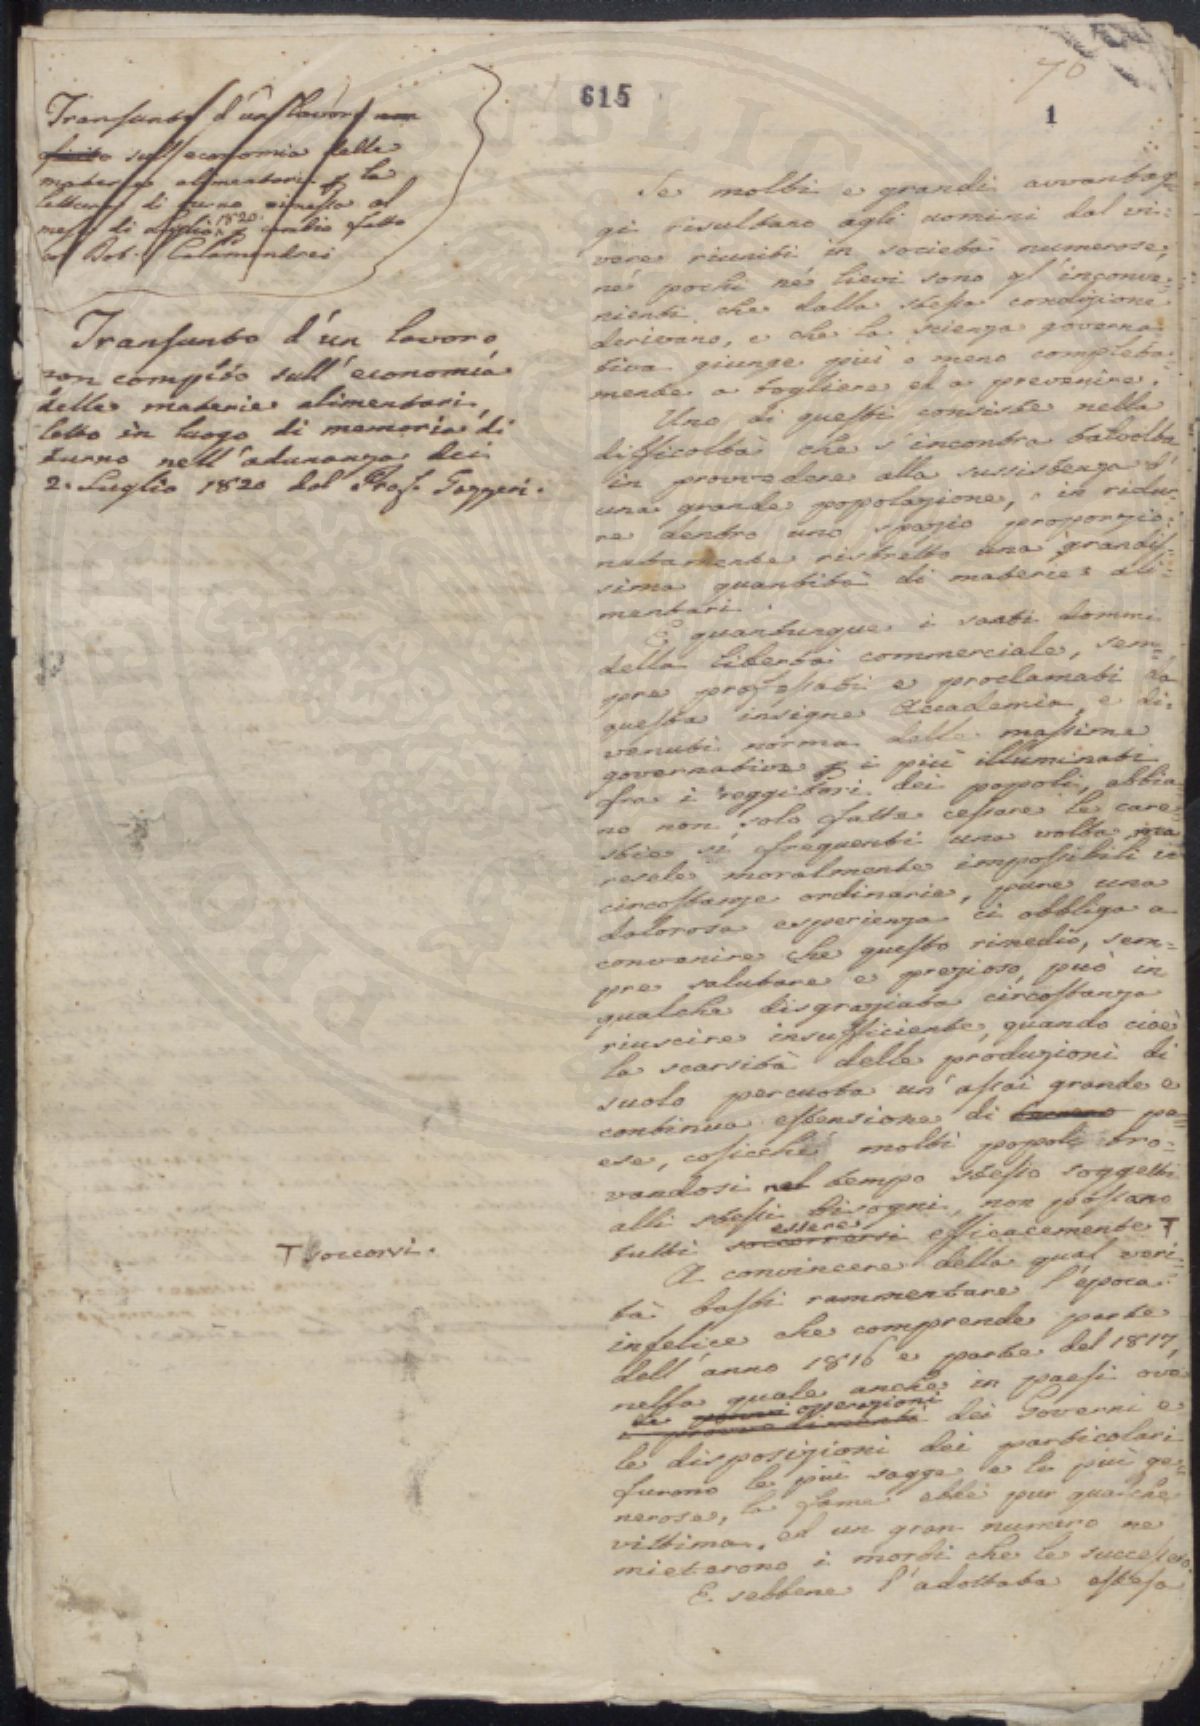 615
70
1
Transunto d'un lavoro non
finito sull'economia delle
materie alimentari p la
lettura di turno rimessa al
mese di Luglio 1820. p cambio fatto
col Dot. Calamandrei
Transunto d'un lavoro
non compito sull'economia
delle materie alimentari,
letto in luogo di memoria di
turno nell'adunanza dei
2. Luglio 1820 dal Prof. Gazzeri.
Se molti e grandi avvantag-
gi risultano agli uomini dal vi-
vere riuniti in società numerose,
né pochi né lievi sono gl'inconve-
nienti che dalla stessa condizione
derivano, e che la scienza governa-
tiva giunge più o meno completa-
mente a togliere ed a prevenire.
Uno di questi consiste nella
difficoltà che s'incontra talvolta
in provvedere alla sussistenza d'
una grande popolazione, in ridur-
re dentro uno spazio proporzio-
natamente ristretto una grandis-
sima quantità di materie ali-
mentari.
E quantunque i santi dommi
della libertà commerciale, sem-
pre professati e proclamati da
questa insigne Accademia, e di-
venuti norma delle massime
governative p i più illuminati
fra i reggitori dei popoli, abbia-
no non solo fatte cessare le care-
stie sì frequenti una volta, ma
resele moralmente impossibili in
circostanze ordinarie, pure una
dolorosa esperienza ci obbliga a
convenire che questo rimedio, sem-
pre salutare e prezioso, può in
qualche disgraziata circostanza
riuscire insufficiente, quando cioè
la scarsità delle produzioni di
suolo percuota un'assai grande e
continua estensione di terreno pa-
ese, cosicché molti popoli tro-
vandosi nel tempo stesso soggetti
alli stessi bisogni, non possano
essere
tutti soccorrersi efficacemente T
T soccorsi.
A convincere della qual veri-
tà basti rammentare l'epoca
infelice che comprende parte
dell'anno 1816 e parte del 1817,
nella quale anche in paesi ove
le operazioni
i provvedimenti dei Governi e
le disposizioni dei particolari
furono le più sagge e le più ge-
nerose, la fame ebbe pur qualche
vittima, ed un gran numero ne
mieterono i morbi che le successero.
E sebbene l'adottata estesa